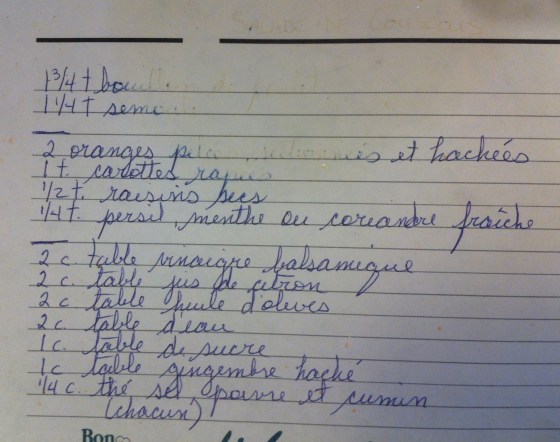 1 3/4 t bouillon de
1 1/4 t semoule
2 oranges pelées, et hachées
1 t. carottes rapées
1/2 t. raisins secs
1/4 t. persil, menthe ou coriandre fraîche
2 c. table vinaigre balsamique
2 c. table jus de citron
2 c. table huile d'olives
2 c. table d'eau
1 c. table de sucre
1 c table gingembre haché
1/4 c. thé sel poivre et cumin
(chacun)
Bon